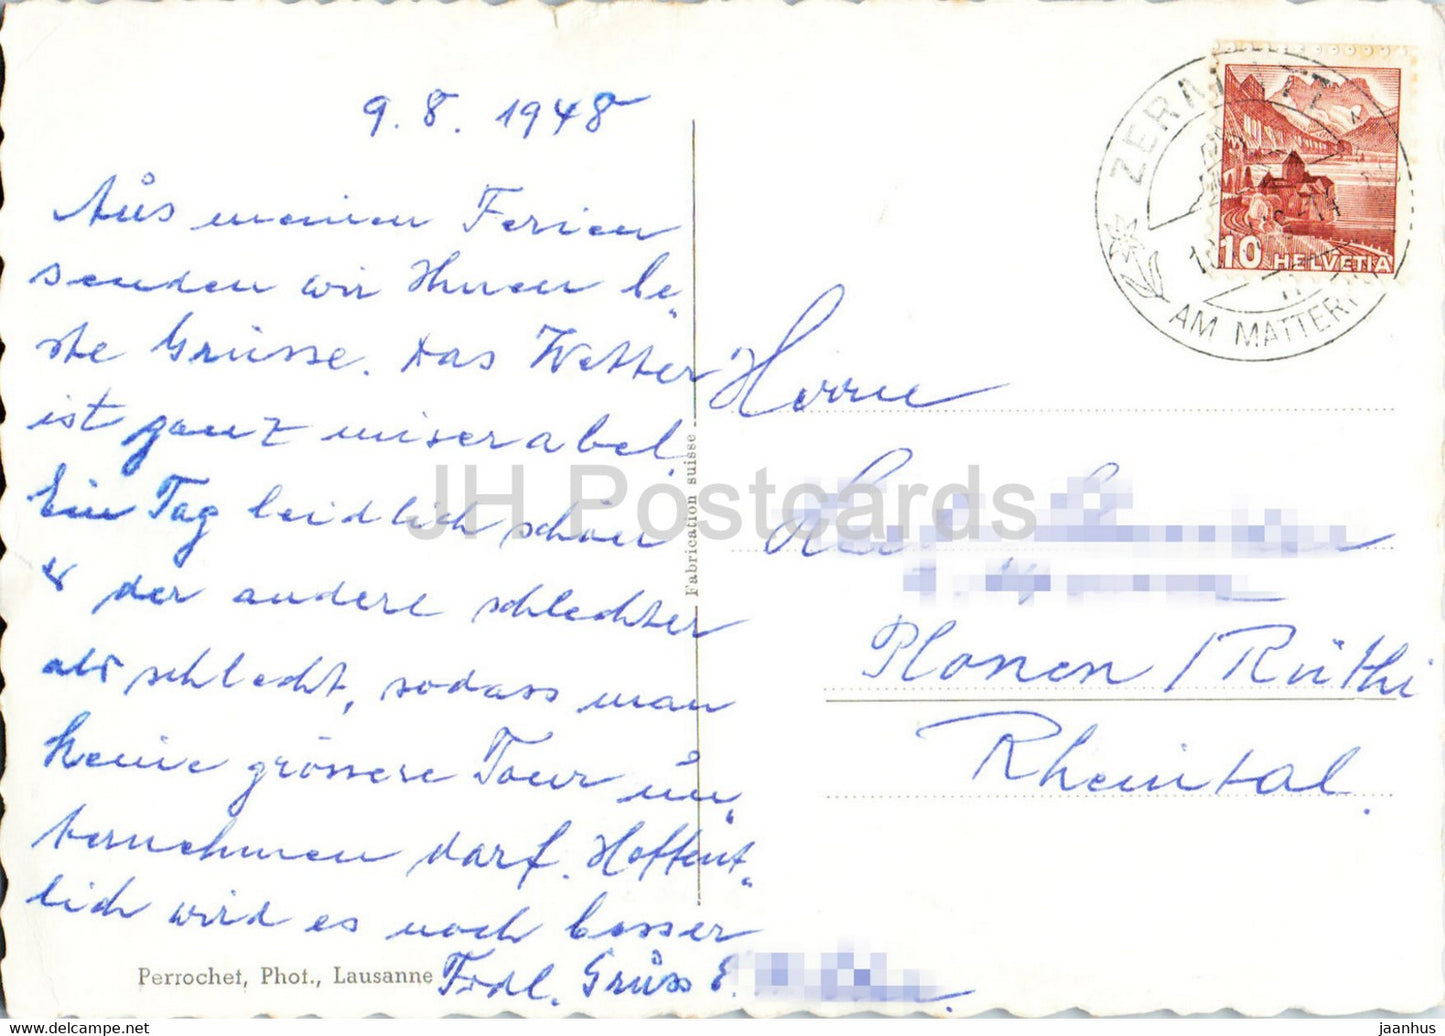 9. 8. 1948
Aus meinen Ferien
senden wir Ihnen be„
ste Grüsse. Das Wetter
ist ganz miserabel.
Ein Tag leidlich schön
& der andere schlechter
als schlecht, sodass man
keine grössere Tour un„
ternehmen darf. Hoffent„
lich wird es noch besser
Frdl. Grüss E.
Perrochet, Phot., Lausanne
Fabrication suisse
ZERMATT
AM MATTERH
10 HELVETIA
Herrn
Plonen / Rüthi
Rheintal.
JH Postcards
jaanhus
hipstamp.com